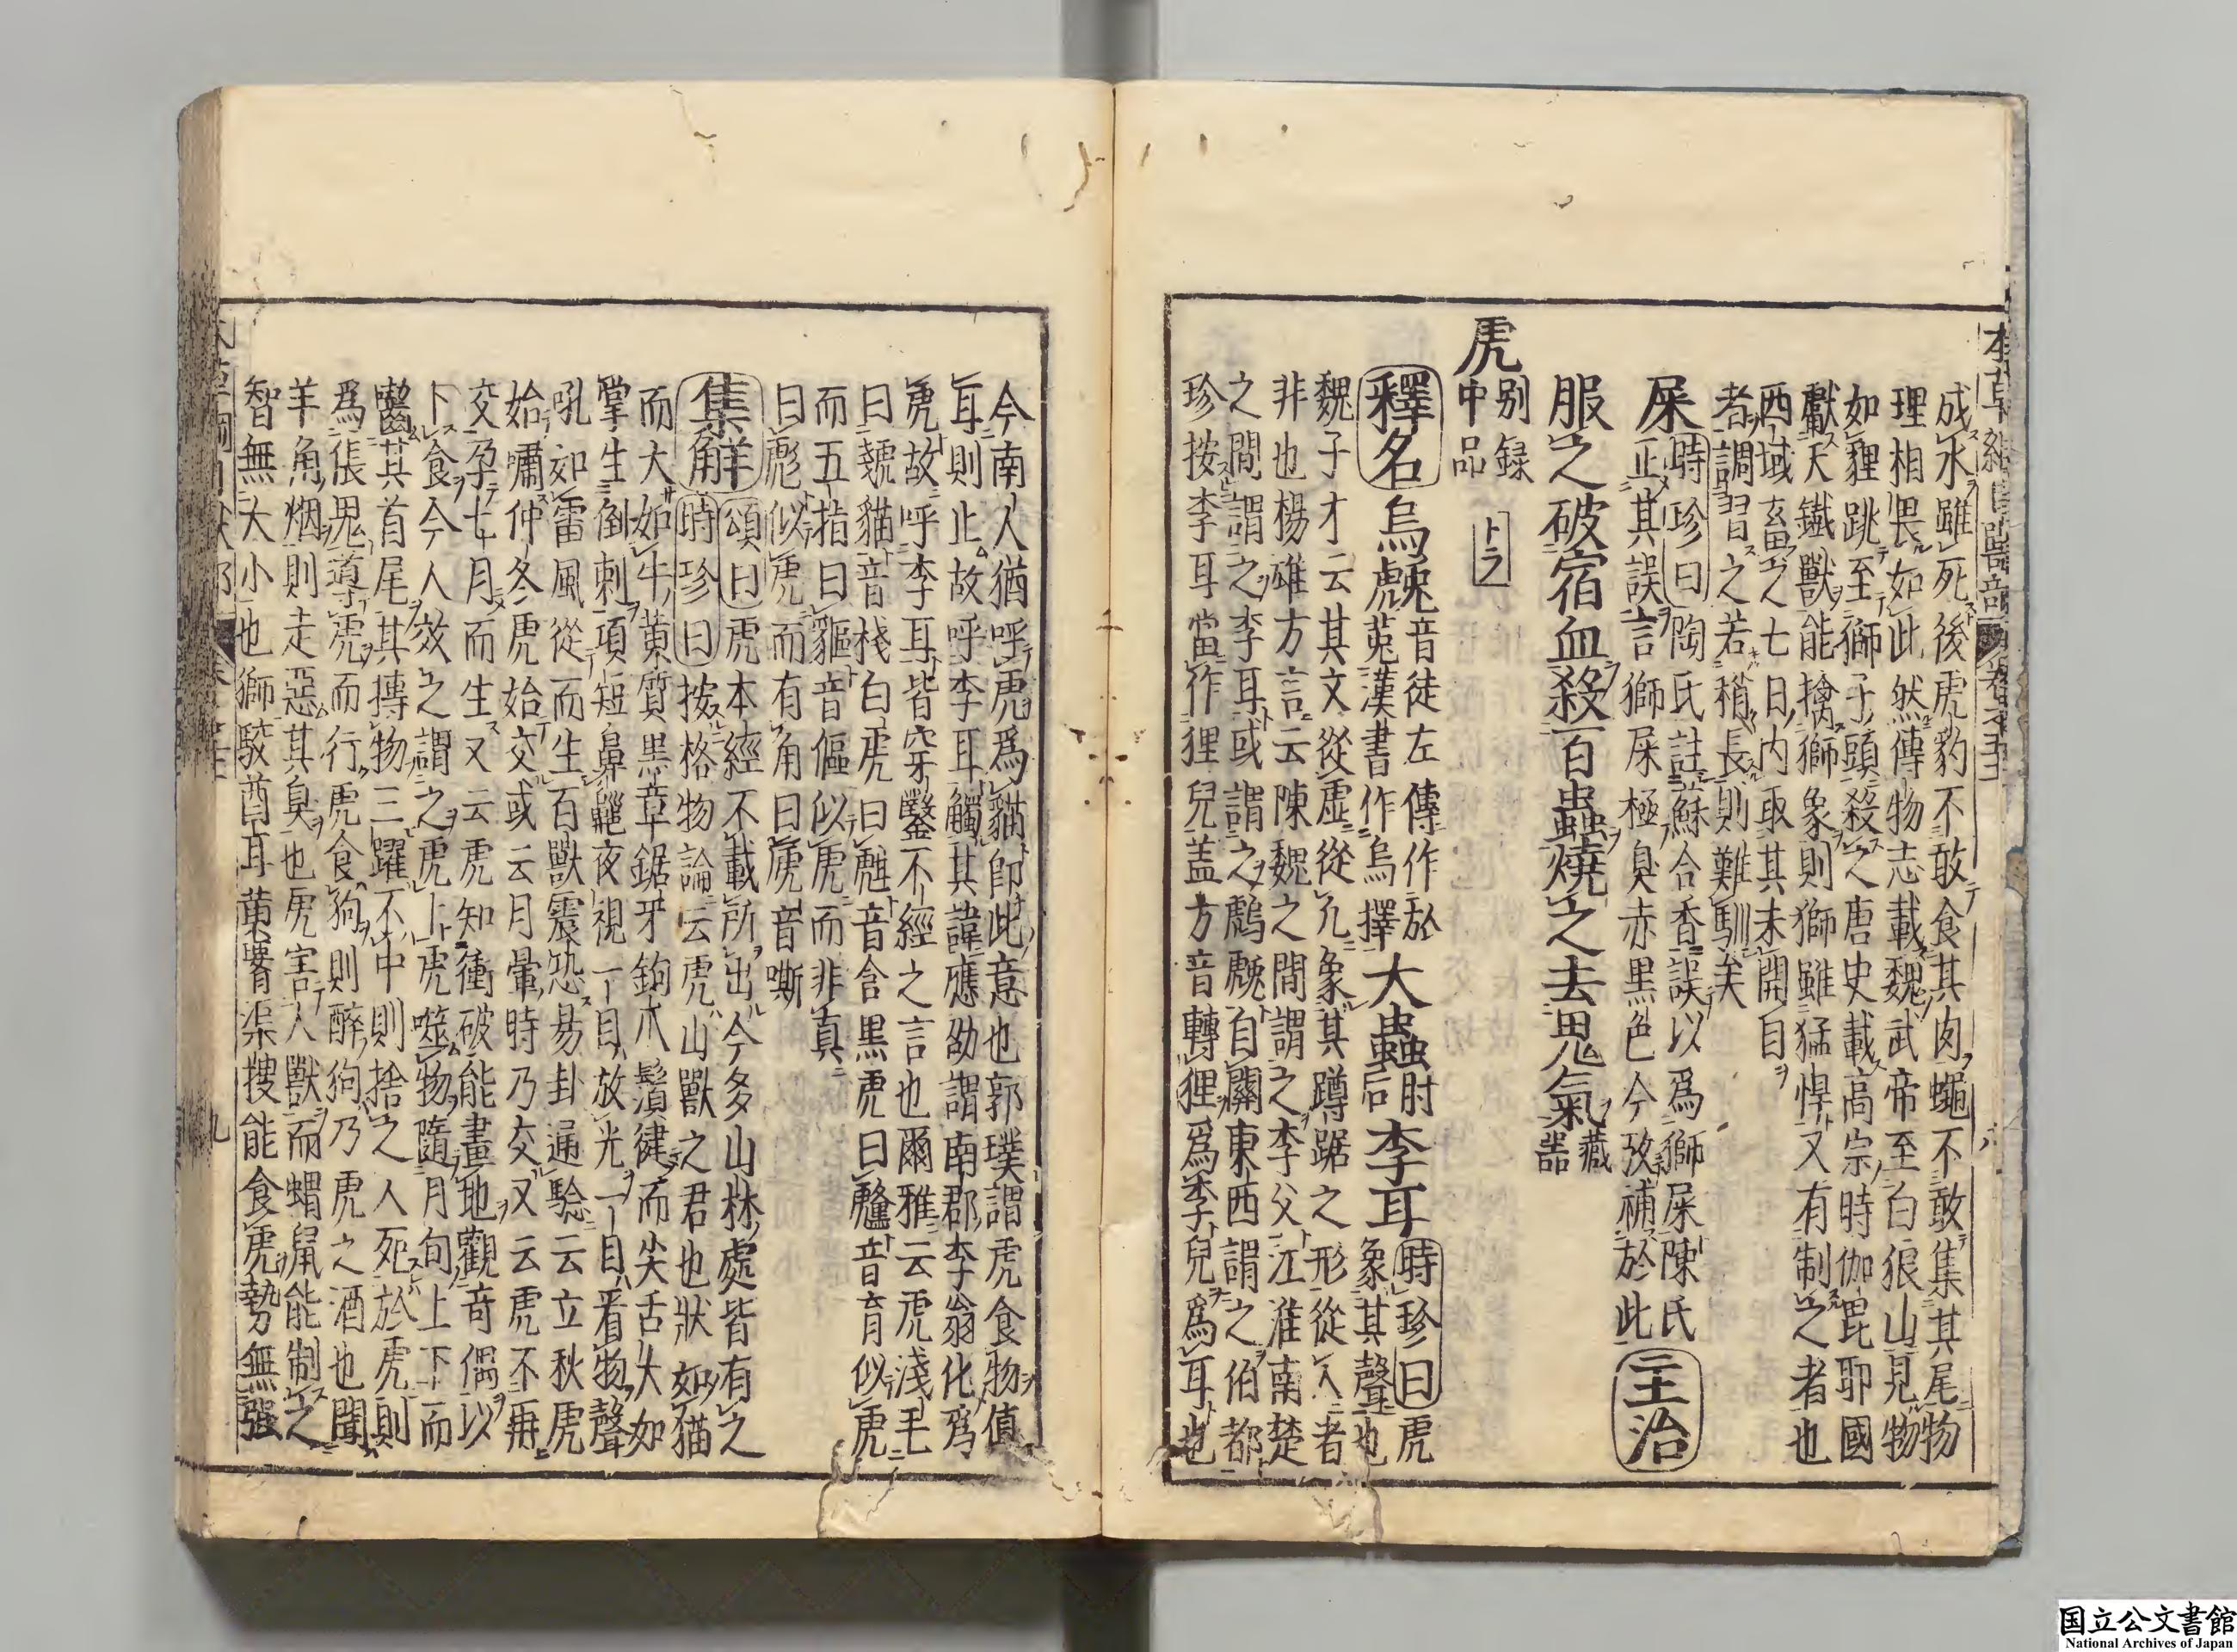 成水雖死後虎豹不敢食其肉蠅不敢集其尾物
理相畏如此然傳物志載魏武帝至白狼山見物
如貍跳至獅子頭殺之唐史載高宗時伽毘耶國
獻天鐵獸能擒獅象則獅雖猛悍又有制之者也
西域畜之七日內取其未開目
者調習之若稍長則難馴矣
屎
時珍曰陶氏註蘇合香誤以爲獅屎陳氏
正其誤言獅屎極臭赤黑色今攷補於此
主治
服之破宿血殺百蟲燒之去鬼氣
藏器
虎
別録
中品
トラ
釋名
烏䖘
音徒左傳作於
菟漢書作烏擇
大蟲
肘后
李耳
時珍曰虎
象其聲也
魏子才云其文從虍從几象其蹲踞之形從人者
非也楊雄方言云陳魏之間謂之李父江淮南楚
之間謂之李耳或謂之𪅖䖘自關東西謂之伯都
珍按李耳當作狸兒盖方音轉狸爲李兒爲耳也
今南人猶呼虎爲貓卽此意也郭璞謂虎食物値
耳則止故呼李耳觸其諱應劭謂南郡李翁化爲
虎故呼李耳皆穿鑿不經之言也爾雅云虎淺毛
曰虦貓音棧白虎曰甝音含黑虎曰虪音育似虎
而五指曰貙音傴似虎而非眞
曰彪似虎而有角曰虒音嘶
集解
頌曰虎本經不載所出今多山林處皆有之
時珍曰按格物論云虎山獸之君也狀如猫
而大如牛黄質黑章鋸牙鉤爪鬚健而尖舌大如
掌生倒刺項短鼻齆夜視一目放光一目看物聲
吼如雷風從而生百獸震恐易卦通驗云立秋虎
始嘯仲冬虎始交或云月暈時乃交又云虎不再
交孕七月而生又云虎知衝破能畫地觀奇偶以
卜食今人效之謂之虎卜虎噬物隨月旬上下而
囓其首尾其搏物三躍不中則捨之人死於虎則
爲倀鬼導虎而行虎食狗則醉狗乃虎之酒也聞
羊角烟則走惡其臭也虎害人獸而蝟鼠能制之
智無大小也獅駮酋耳黄腰渠搜能食虎勢無强
九
国立公文書館
National Archives of Japan